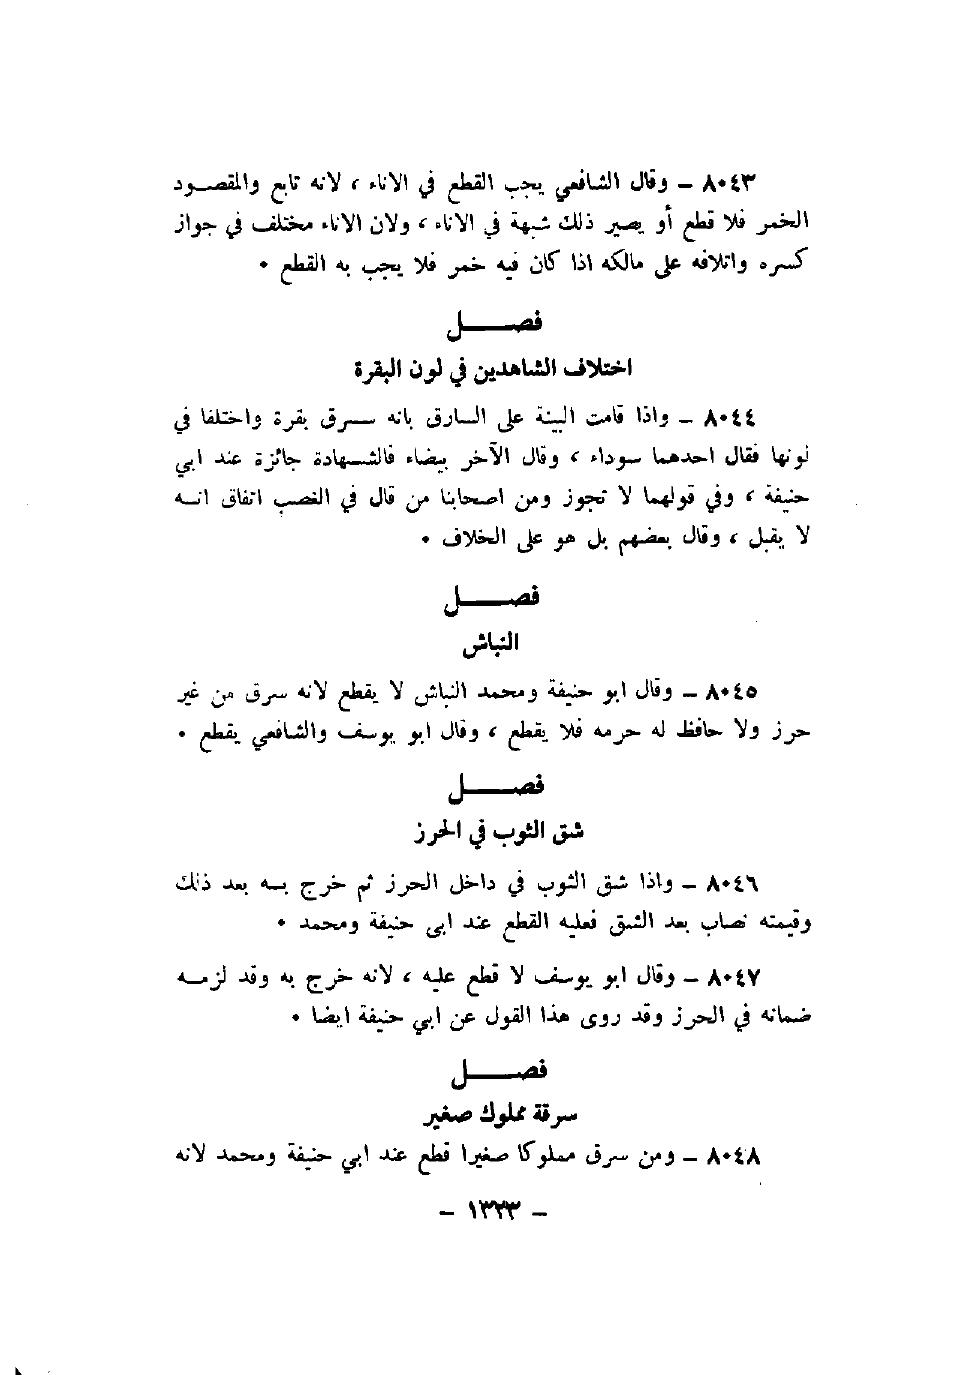 ٨٠٤٣ – وقال الشافعي يجب القطع في الاناء ، لانه تابع والمقصود
الخمر فلا قطع أو يصير ذلك شبهة في الاناء ، ولان الاناء مختلف في جواز
كسره واتلافه على مالكه اذا كان فيه خمر فلا يجب به القطع •
فصل
اختلاف الشاهدين في لون البقرة
٨٠٤٤ – واذا قامت البينة على السارق بانه سرق بقرة واختلفا في
لونها فقال احدهما سوداء ، وقال الآخر بيضاء فالشهادة جائزة عند ابي
حنيفة ، وفي قولهما لا تجوز ومن اصحابنا من قال في الغصب اتفاق انه
لا يقبل ، وقال بعضهم بل هو على الخلاف •
فصل
النباش
٨٠٤٥ – وقال ابو حنيفة ومحمد النباش لا يقطع لانه سرق من غير
حرز ولا حافظ له حرمه فلا يقطع ، وقال ابو يوسف والشافعي يقطع •
فصل
شق الثوب في الحرز
٨٠٤٦ – واذا شق الثوب في داخل الحرز ثم خرج به بعد ذلك
وقيمته نصاب بعد الشق فعليه القطع عند ابى حنيفة ومحمد •
٨٠٤٧ – وقال ابو يوسف لا قطع عليه ، لانه خرج به وقد لزمه
ضمانه في الحرز وقد روى هذا القول عن ابي حنيفة ايضا •
فصل
سرقة مملوك صغير
٨٠٤٨ – ومن سرق مملوكا صغيرا قطع عند ابي حنيفة ومحمد لانه
– ١٣٢٣ –